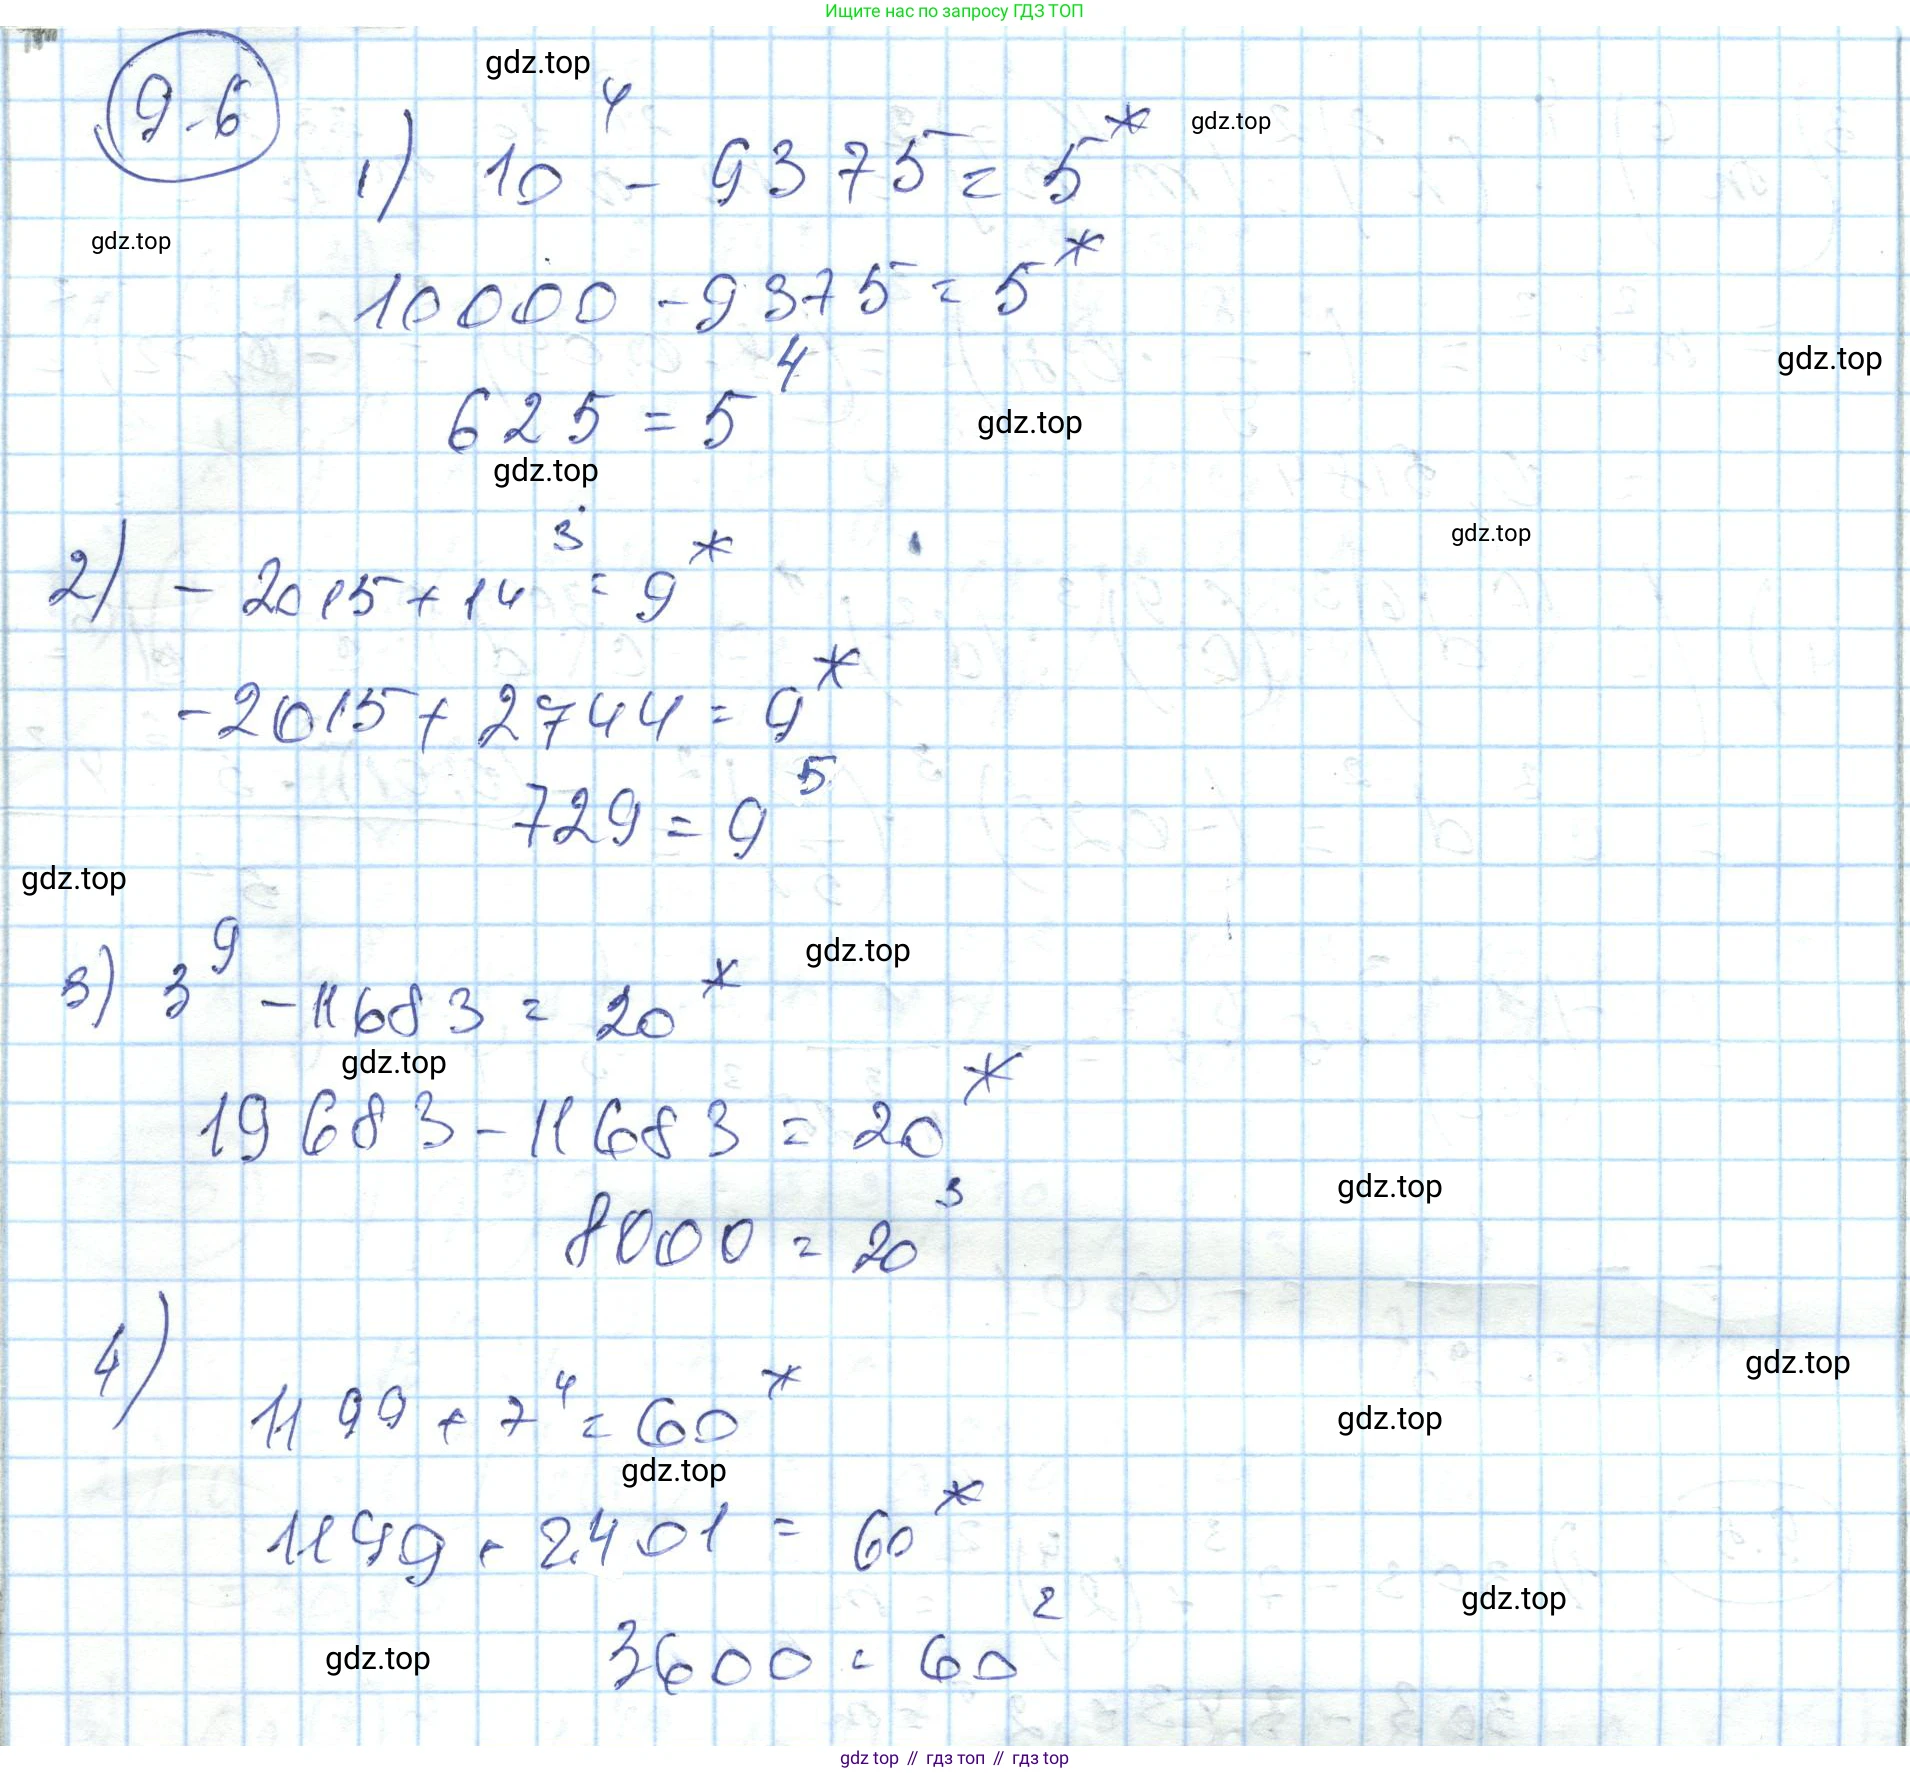 Ищите нас по запросу ГДЗ ТОП
9.6
gdz.top
1) 10⁴ - 9375 = 5* gdz.top
gdz.top
10000 - 9375 = 5*
gdz.top
625 = 5⁴ gdz.top
gdz.top
gdz.top
2) - 2015 + 14³ = 9*
-2015 + 2744 = 9*
729 = 9⁵
gdz.top
gdz.top
3) 3⁹ - 11683 = 20*
gdz.top
19683 - 11683 = 20*
gdz.top
8000 = 20³
gdz.top
4) 1199 + 7⁴ = 60* gdz.top
gdz.top
1199 + 2401 = 60*
gdz.top
3600 = 60²
gdz.top
gdz top // гдз топ // гдз top